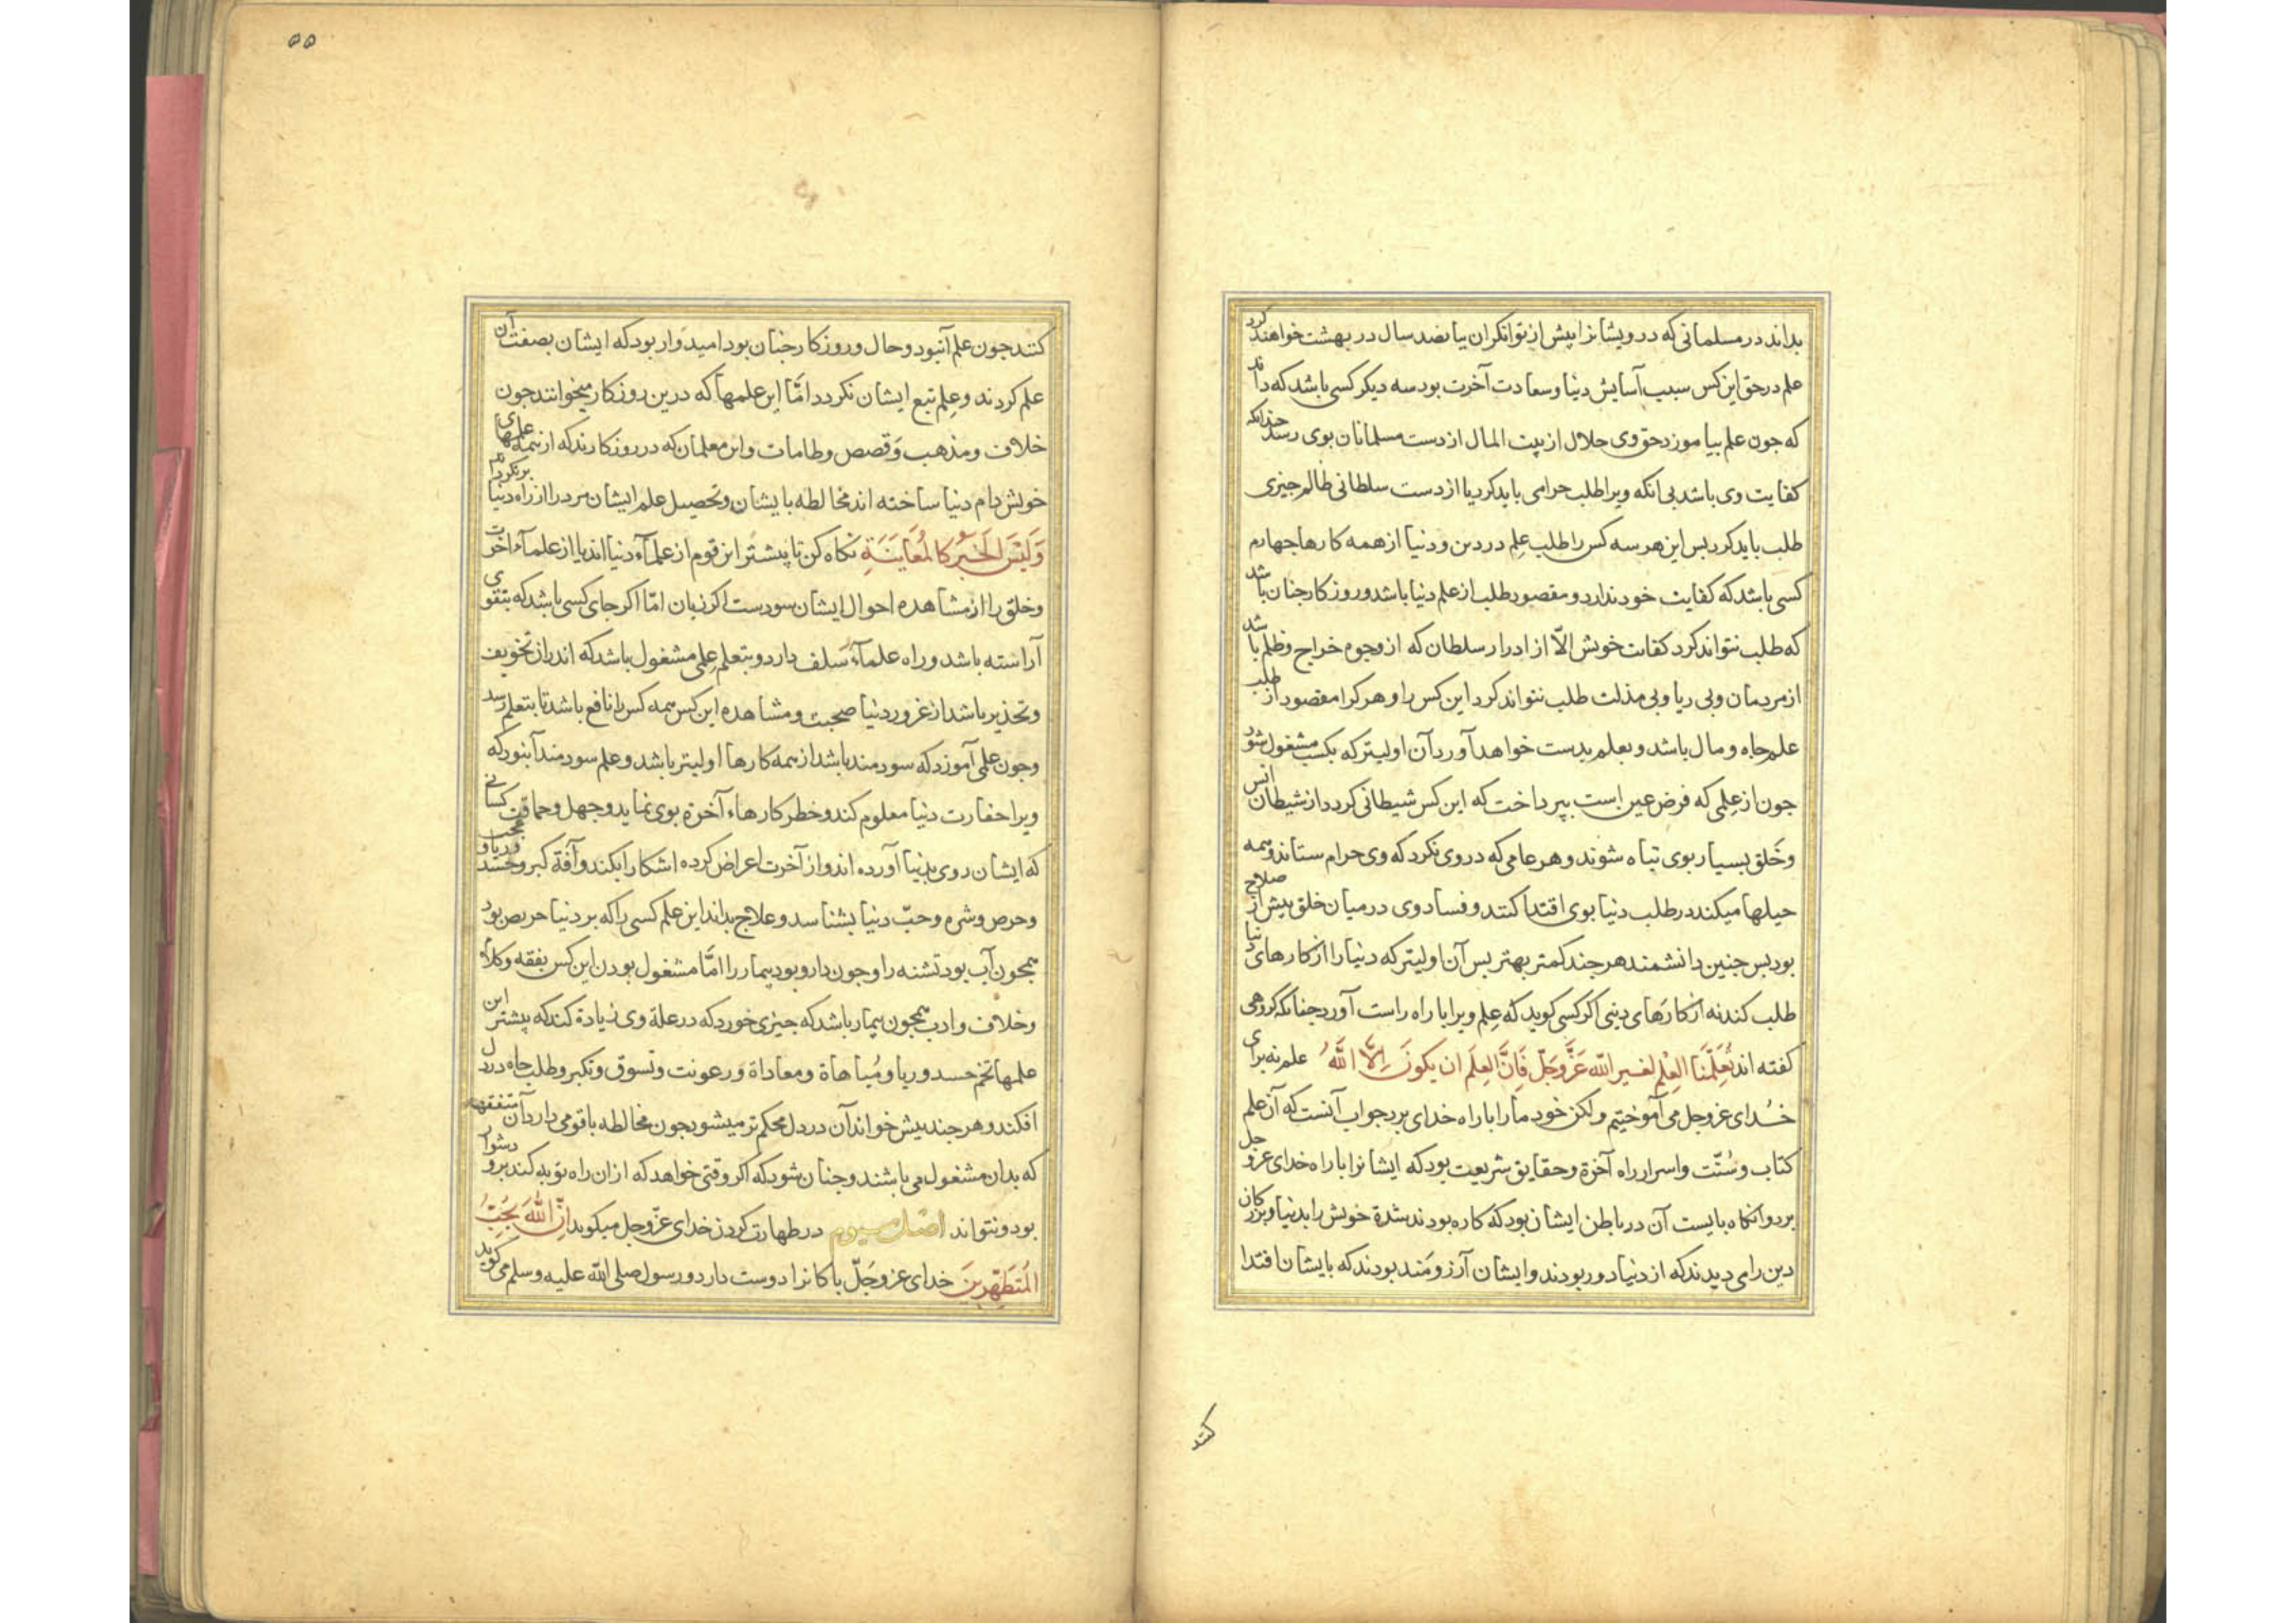 بداند در مسلمانی که درویشانرا پیش از توانکران بپانصد سال در بهشت خواهند کرد
علم در حق این کس سبب آسایش دنیا و سعادت آخرت بود سه دیکر کسی باشد که داند
که جون علم بیاموزد حق وی حلال از بیت المال از دست مسلمانان بوی رسد جندانکه
کفایت وی باشد بی آنکه ویرا طلب حرامی باید کرد یا از دست سلطانی ظالم جیزی
طلب باید کرد بس این هر سه کس را طلب علم در دین و دنیا از همه کارها جهارم
کسی باشد که کفایت خود ندارد و مقصود طلب از علم دنیا باشد و روزکار جنان باشد
که طلب نتواند کرد کفایت خویش الّا از ادرار سلطان که از وجوه خراج و ظلم باشد
از مردمان و بی ریا و بی مذلت طلب نتواند کرد این کس را و هر کرا مقصود از طلب
علم جاه و مال باشد و بعلم بدست خواهد آورد آن اولیتر که بکسب مشغول شود
جون از علمی که فرض عین است ببرداخت که این کس شیطانی کردد از شیطان انس
و خلق بسیار بوی تباه شوند و هر عامی که در وی نکرد که وی حرام ستاند و همه
حیلها میکند در طلب دنیا بوی اقتدا کنند و فساد وی در میان خلق بیش از صلاح
بود بس جنین دانشمند هر جند کمتر بهتر بس آن اولیتر که دنیا را از کارهای دنیا
طلب کند نه از کارهای دینی اکر کسی کوید که علم ویرا با راه راست آورد جنانکه کروهی
کفته اند تعلّمنا العِلْم لغیر اللّه عَزَّوجَلّ فَاِنَّ العِلَم ان یکونَ اِلَّا اللّهُ علم نه برای
خدای عزوجل می آموختیم ولکن خود ما را با راه خدای برد جواب آنست که آن علم
کتاب و سُنّت و اسرار راه آخرة و حقایق شریعت بود که ایشانرا با راه خدای عزوجل
برد وانکاه بایست آن در باطن ایشان بود که کاره بودند شدة خویش را بدنیا و بزرکان
دین را می دیدند که از دنیا دور بودند و ایشان آرزومند بودند که بایشان اقتدا
کنند
۵۵
کنند جون علم آنبود و حال و روزکار جنان بود امیدوار بود که ایشان بصفت آن
علم کردند و علم تبع ایشان نکردد امّا این علمها که درین روزکار میخوانند جون
خلاف و مذهب و قصص و طامات و این معلمان که در روزکارند که از همه علمهای
خویش دام دنیا ساخته اند مخالطه بایشان و تحصیل علم ایشان مرد را از راه دنیا برنکرداند
وَلَیْسَ الخَبَرُ کَالمُعَایَنَةِ نکاه کن تا پیشتر این قوم از علمآء دنیا اند یا از علمآء اخرت
و خلق را از مشاهده احوال ایشان سودست اکر زیان امّا اکر جای کسی باشد که بتقوی
آراسته باشد و راه علمآء سَلف دارد و بتعلم علمی مشغول باشد که اندر از تخویف
و تحذیر باشد از غرور دنیا صحبت و مشاهده این کس همه کس را نافع باشد تا بتعلم رسد
و جون علمی آموزد که سودمند باشد از همه کارها اولیتر باشد و علم سودمند آنبود که
ویرا حقارت دنیا معلوم کند و خطر کارهاء آخرة بوی نماید و جهل و حماقت کسانی
که ایشان روی بدنیا آورده اند و از آخرت اعراض کرده اشکارا بکند و آفة کبر و حسد و ریا و عجب
و حرص و شره و حبّ دنیا بشناسد و علاج بداند این علم کسی را که بر دنیا حریص بود
همجون آب بود تشنه را و جون دارو بود بیمار را امّا مشغول بودن این کس بفقه و کلام
و خلاف و ادب همجون بیمار باشد که جیزی خورد که در علة وی زیادة کند که بیشتر این
علمها تخم حسد و ریا و مُباهاة و معاداة و رعونت و تسوق و تکبر و طلب جاه در دل
افکند و هر جند بیش خواند آن در دل محکم تر میشود جون مخالطه باقومی دارد از آن متفقهه
که بدان مشغول می باشند و جنان شود که اکر وقتی خواهد که ازان راه توبه کند برو دشوار
بود و نتواند اصل سیوم در طهارت کردن خدای عزّوجل میکوید اِنّ اللّهَ یُحِبُّ
المُتَطَهِّرِینَ خدای عزوجَلّ باکانرا دوست دارد و رسول صلی اللّه علیه وسلم می کوید